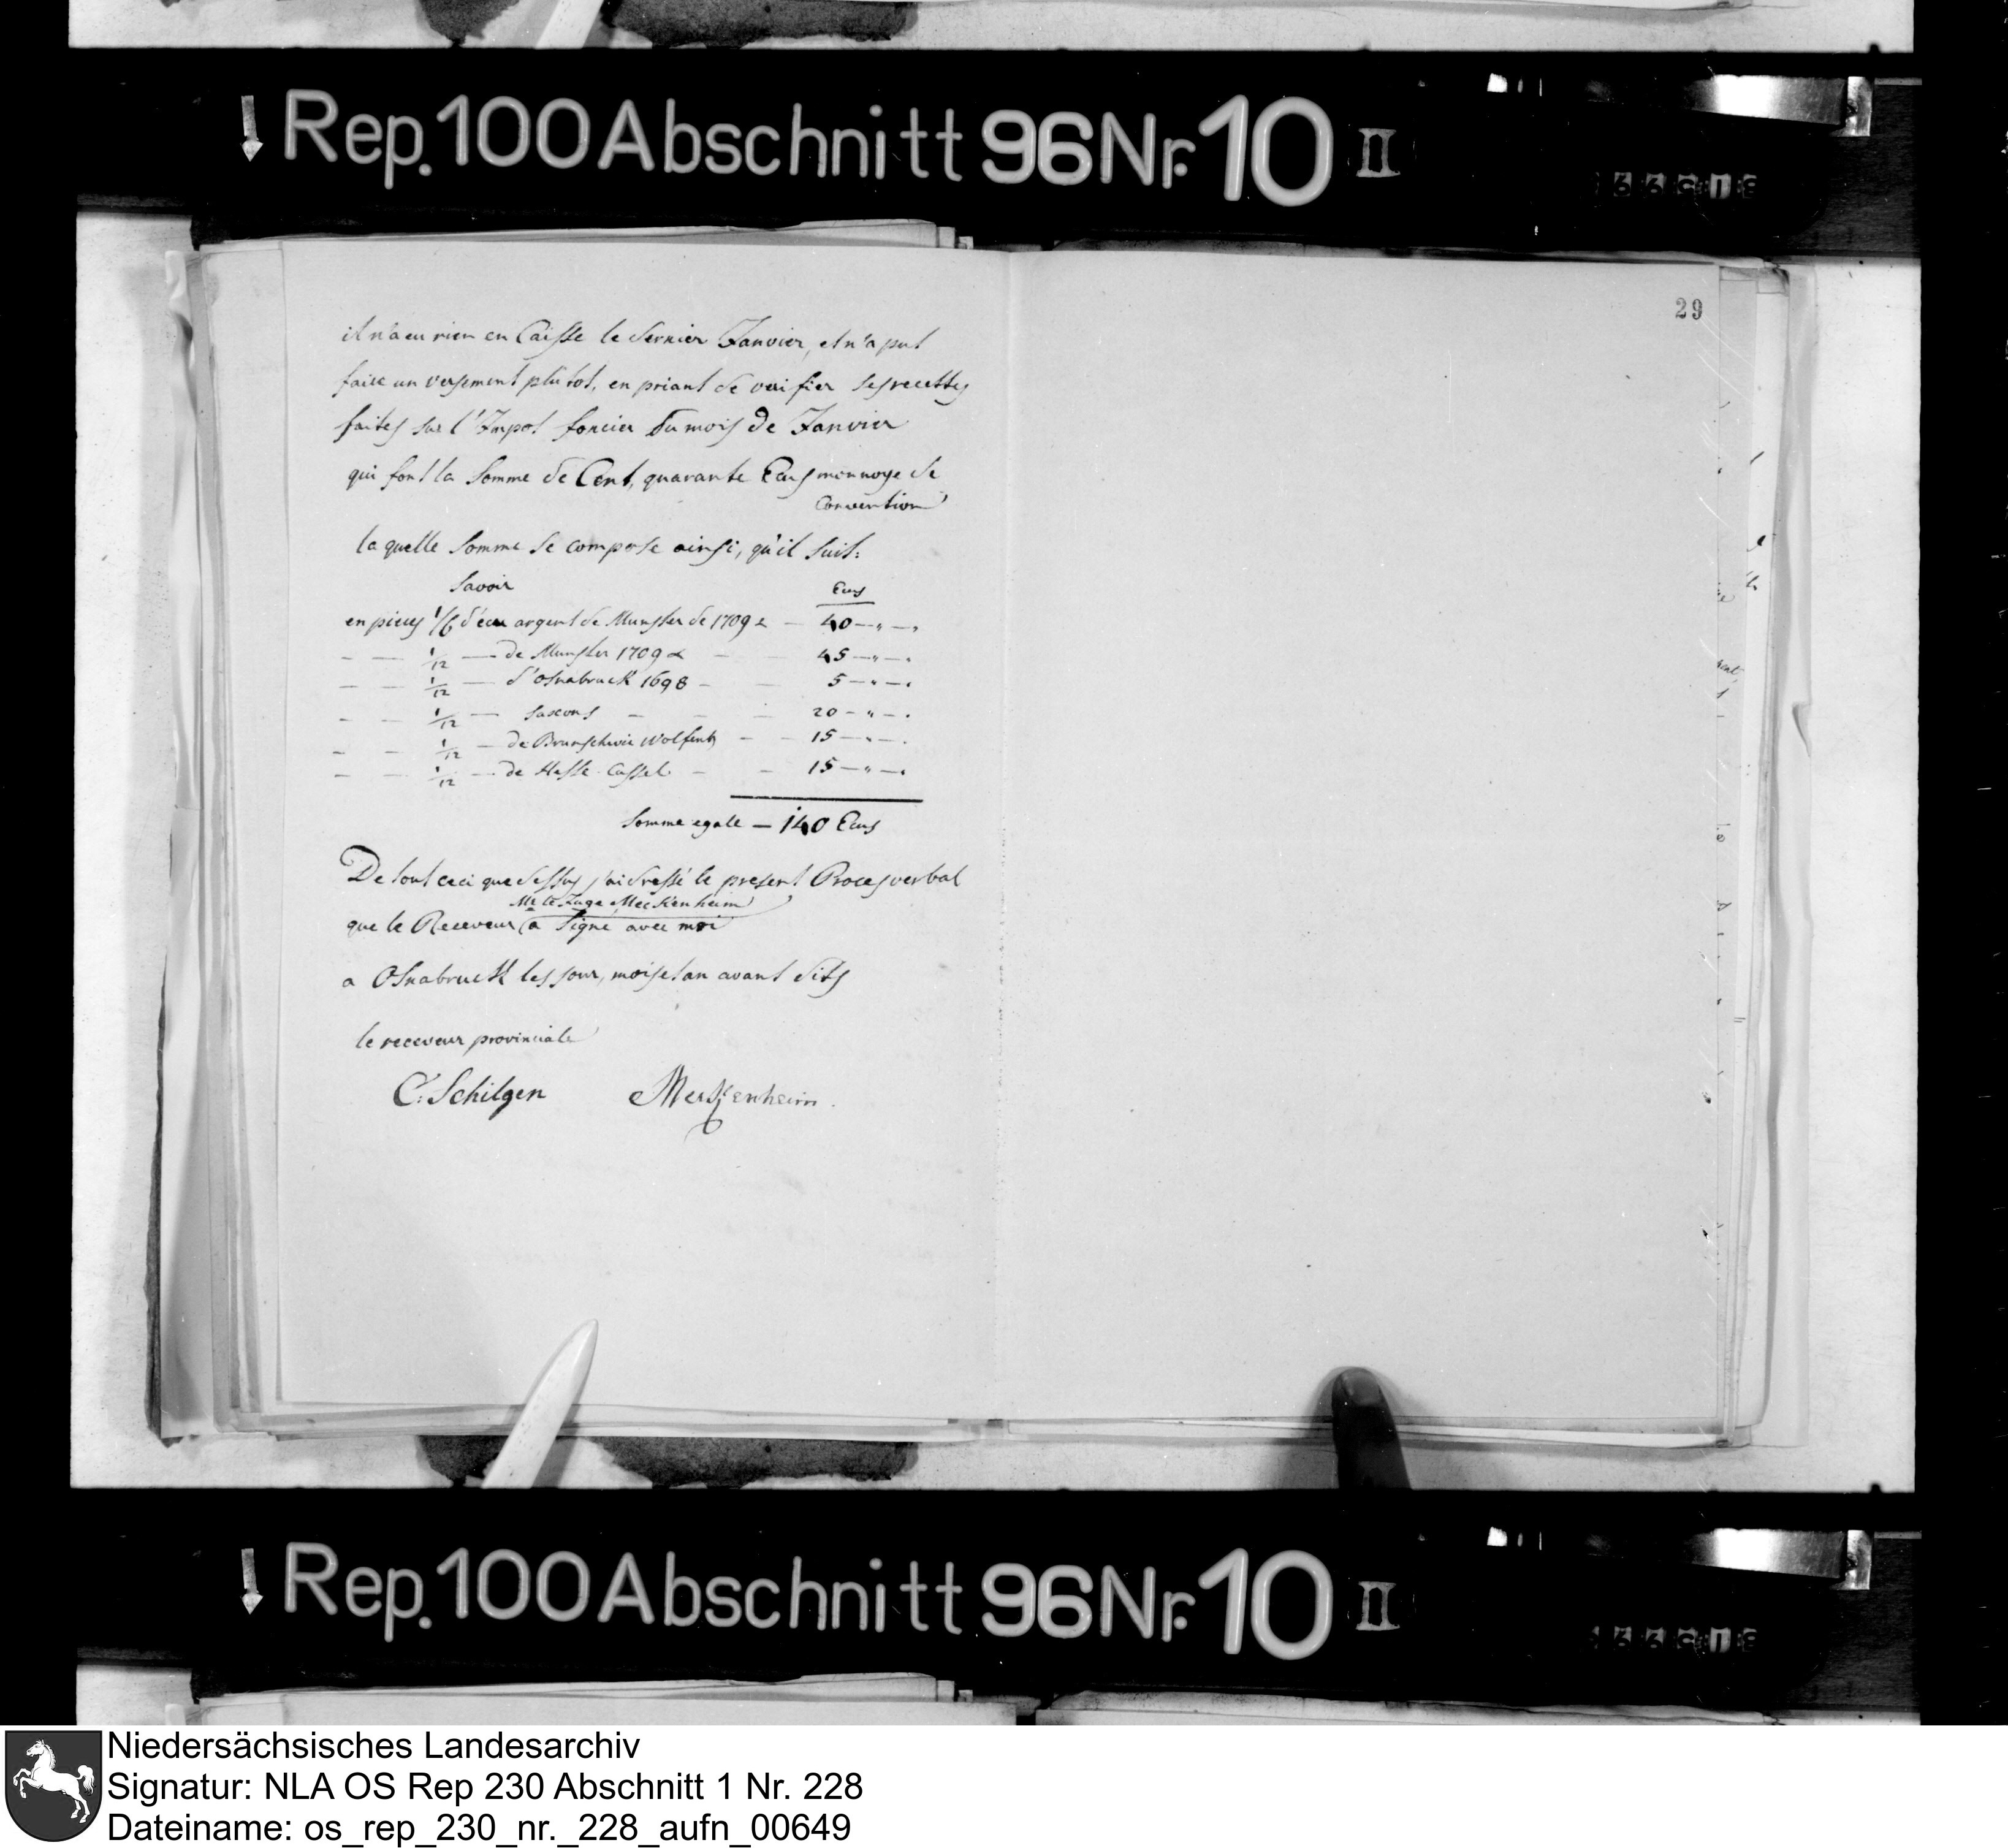 Rep. 100 Abschnitt 96 Nr. 10 II
29
il n'a eu rien en Caisse le dernier Janvier, et n'a put
faire un versement plûtot, en priant de verifier ses recettes
faites sur l'Impot foncier du mois de Janvier
qui font la Somme de Cent, quarante Ecus monnoye de
Convention
la quelle Somme se compose ainsi, qu'il suit:
Savoir
Ecus
en pieces 1/6 d'écu argent de Munster de 1709 — 40 — " — "
— — 1/12 — de Munster 1709 — — 45 — " — "
— — 1/12 — d'Osnabruck 1698 — — 5 — " — "
— — 1/12 — saxons — — — 20 — " — "
— — 1/12 — de Brunschwic Wolfenb — — 15 — " — "
— — 1/12 — de Hesse-Cassel — — 15 — " — "
Somme egale — 140 Ecus
De tout ceci que dessus j'ai dressé le present Proces verbal
Mr le Juge Meckenheim
que le Receveur a Signé avec moi
a Osnabruck les jour, mois et an avant dits
le receveur provinciale
C. Schilgen Meckenheim.
Rep. 100 Abschnitt 96 Nr. 10 II
Niedersächsisches Landesarchiv
Signatur: NLA OS Rep 230 Abschnitt 1 Nr. 228
Dateiname: os_rep_230_nr._228_aufn_00649